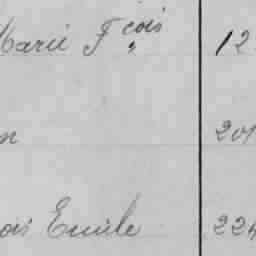 Marie Fçois 12
n 201
ois Emile 224